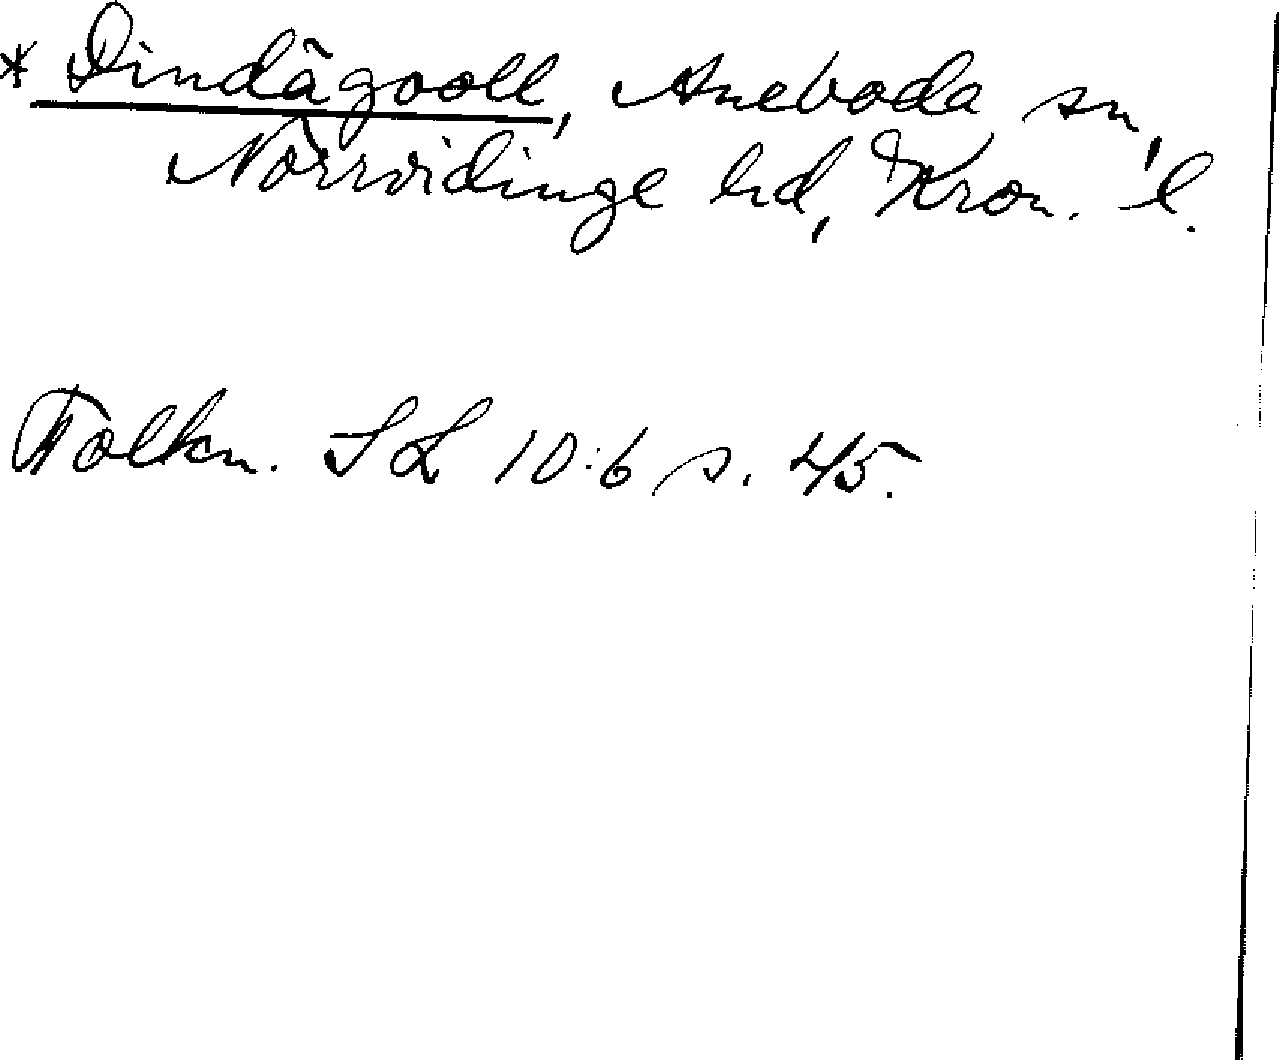 * Dindågooll, Aneboda sn,
Norrvidinge hd, Kron. l.
Tolkn. SL 10:6 s. 45.